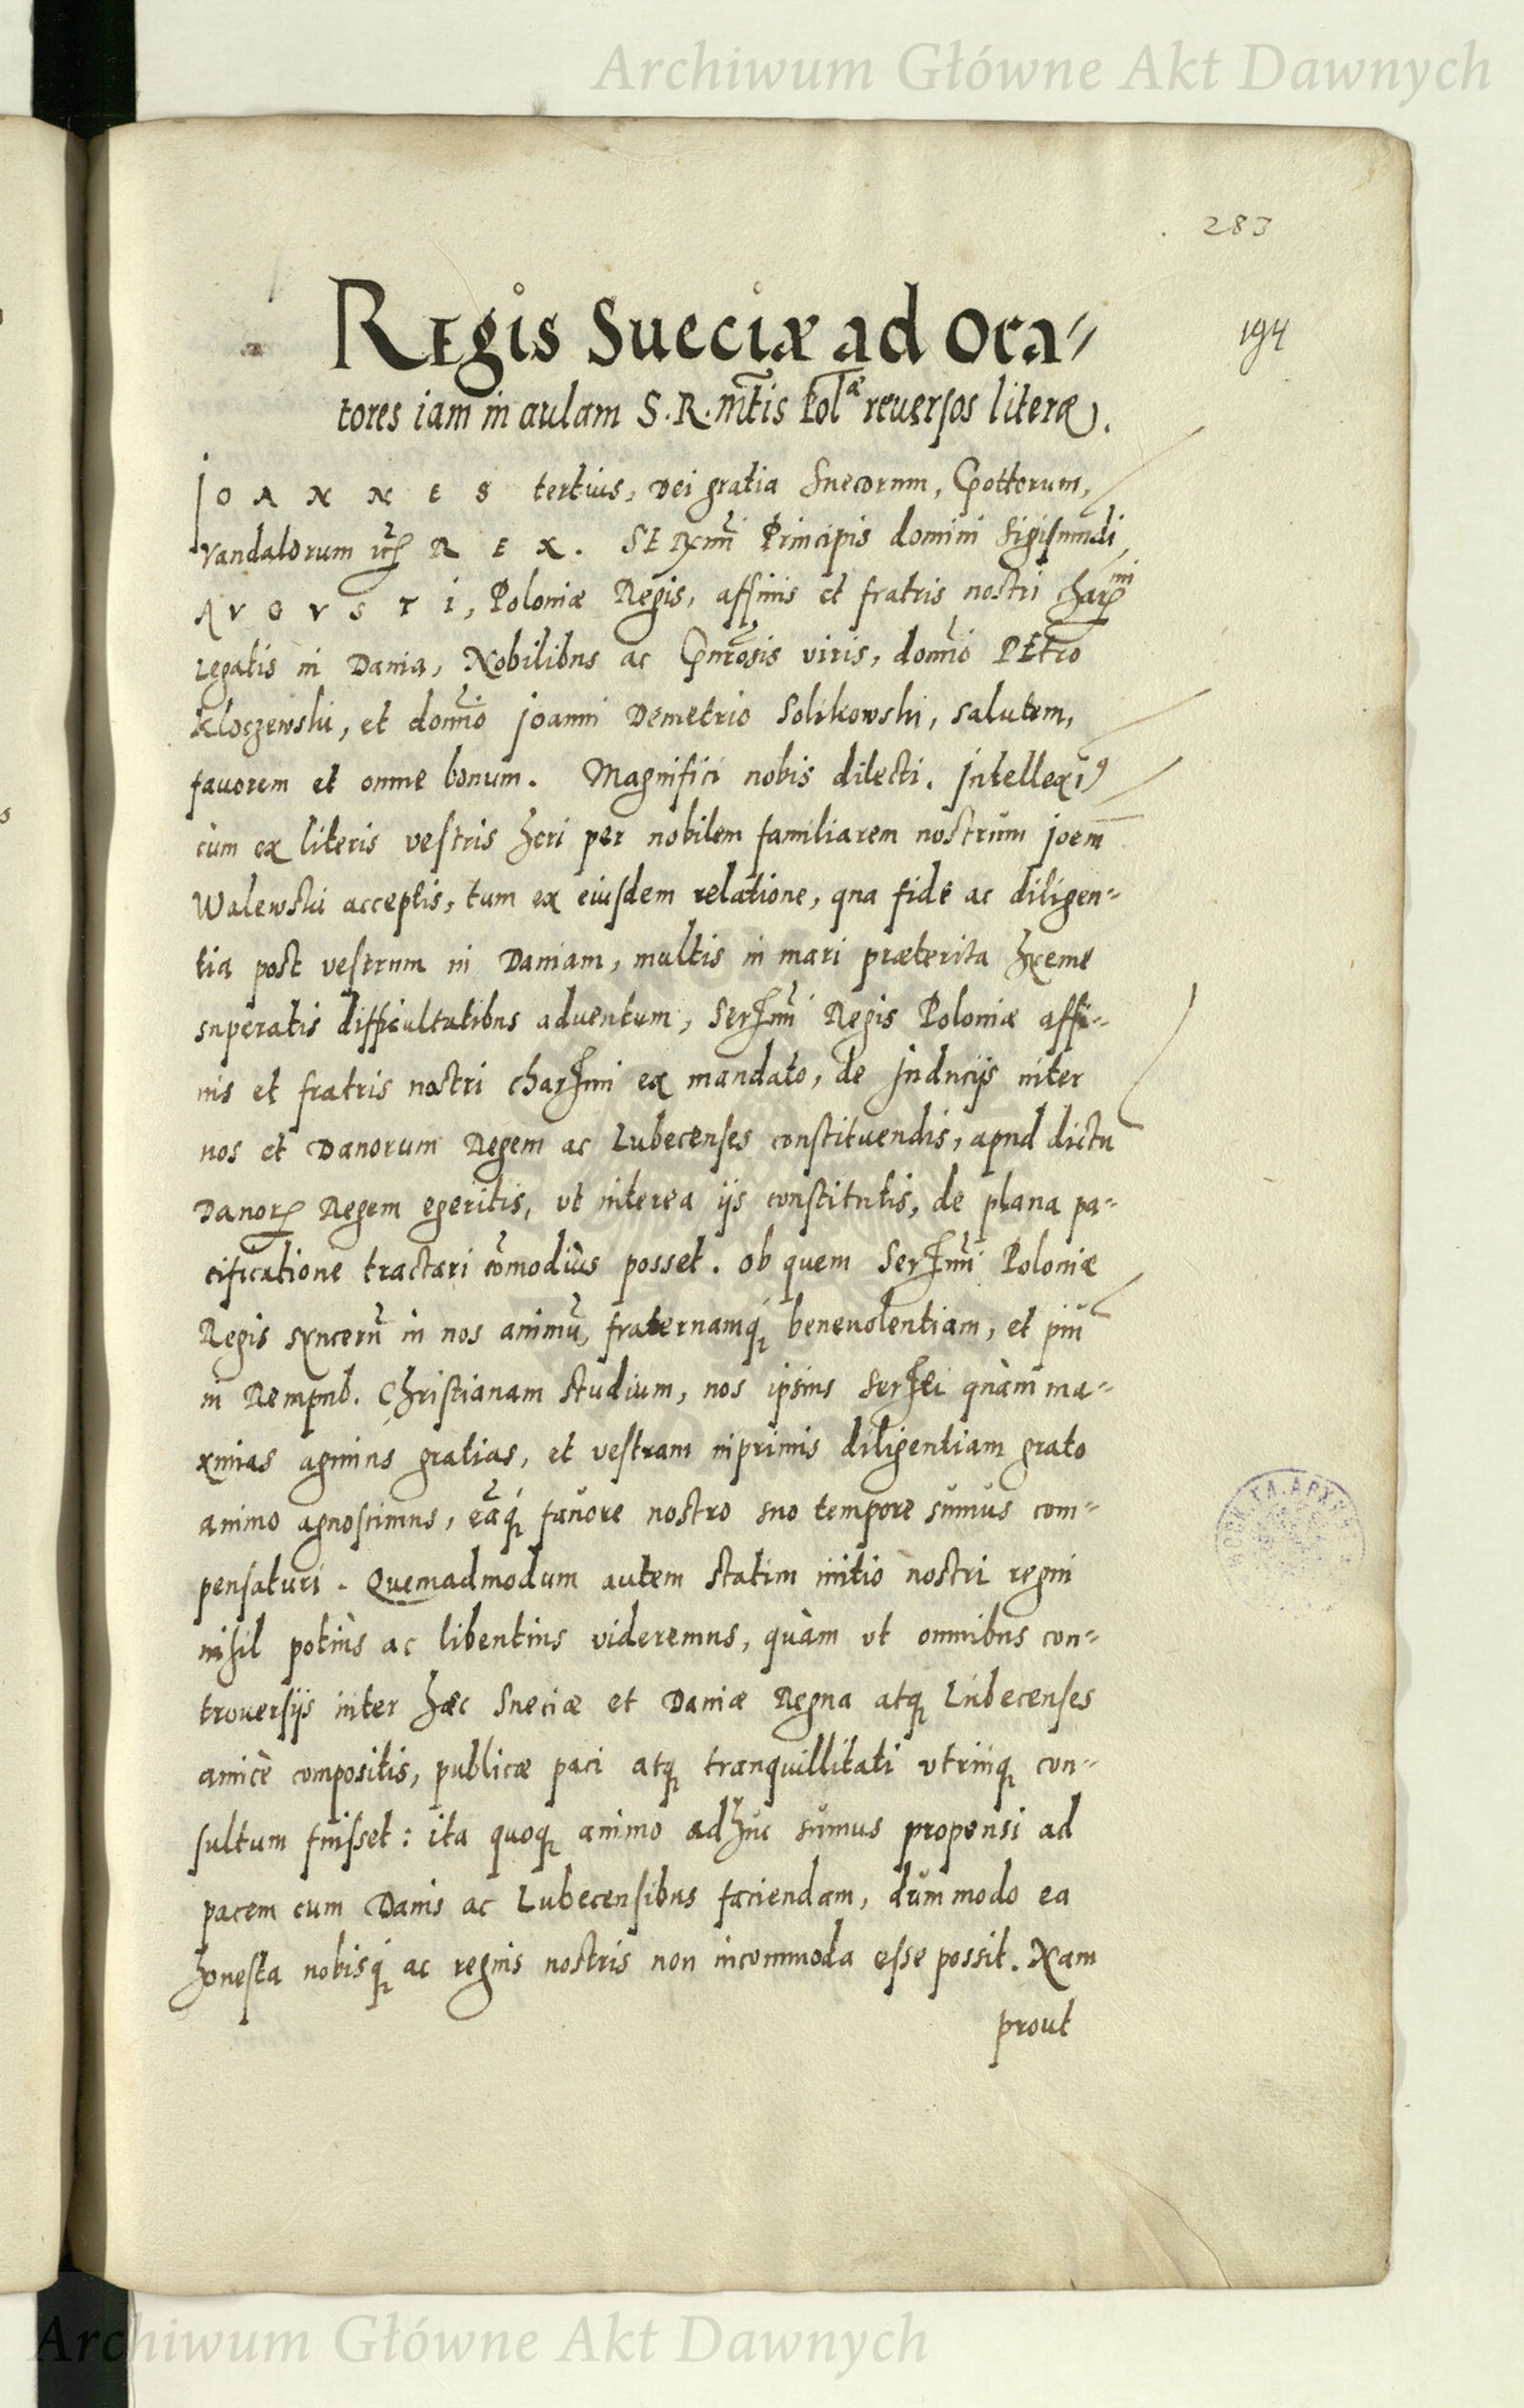 Archiwum Główne Akt Dawnych
283
194
Regis Sueciæ ad Ora-
tores iam in aulam S. R. mtis Polæ reversos literæ.
JOANNES tertius, Dei gratia Suecorum, Gottorum,
Vandalorum etc. REX. Serxmi Principis domini Sigismundi
AVGVSTI, Poloniæ Regis, affinis et fratris nostri charmi
Legatis in Dania, Nobilibus ac Gnrosis viris, domio Petro
Kloczewski, et domio Joanni Demetrio Solikowski, salutem,
favorem et omne bonum. Magnifici nobis dilecti. Intellexim9
cùm ex literis vestris heri per nobilem familiarem nostrum Joem
Walewski acceptis, tum ex eiusdem relatione, qua fide ac diligen-
tia post vestrum in Daniam, multis in mari præterita hyeme
superatis difficultatibus aduentum, Serxmi Regis Poloniæ affi-
nis et fratris nostri charxmi ex mandato, de Inducijs inter
nos et Danorum Regem ac Lubecenses constituendis, apud dictu
Danor Regem egeritis, ut interea ijs constitutis, de plana pa-
cificatione tractari cōmodiùs posset. Ob quem Serxmi Poloniæ
Regis syncerū in nos animū, fraternamq benevolentiam, et piū
in Rempub. Christianam studium, nos ipsius Serxti quàm ma-
ximas agimus gratias, et vestram inprimis diligentiam grato
animo agnoscimus, eāq favore nostro suo tempore sumus com-
pensaturi. Quemadmodum autem statim initio nostri regni
nihil potius ac libentius videremus, quàm ut omnibus con-
troversijs inter hæc Sueciæ et Daniæ Regna atq Lubecenses
amicè compositis, publicæ paci atq tranquillitati utrinq con-
sultum fuisset: ita quoq animo adhuc sumus propensi ad
pacem cum Danis ac Lubecensibus faciendam, dummodo ea
honesta nobisq ac regnis nostris non incommoda esse possit. Nam
prout
Archiwum Główne Akt Dawnych